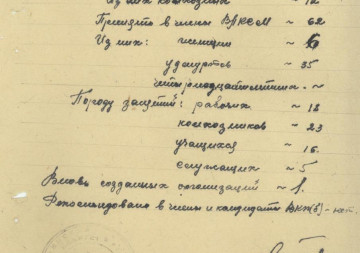 Из них комсомолок ~ 12
Принято в члены ВЛКСМ ~ 62
Из них: женщин ~ 6
удмуртов ~ 35
~
По роду занятий: рабочих ~ 18
колхозников ~ 23
учащихся ~ 16.
служащих ~ 5
Вновь созданных организаций ~ 1.
Рекомендовано в члены и кандидаты ВКП(б) - нет.